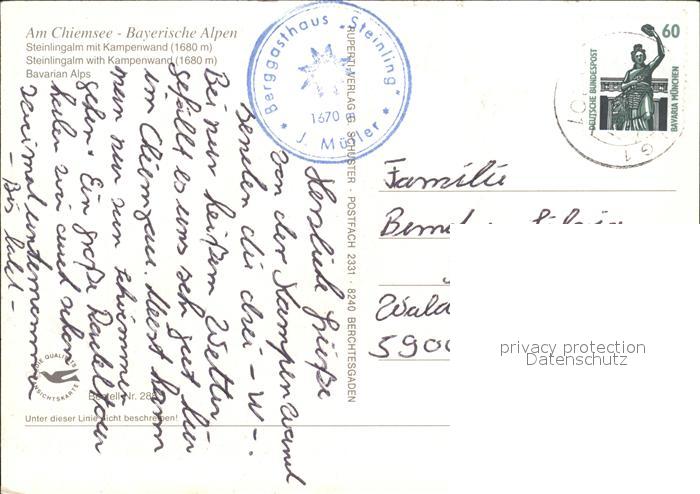 Am Chiemsee - Bayerische Alpen
Steinlingalm mit Kampenwand (1680 m)
Steinlingalm with Kampenwand (1680 m)
Bavarian Alps
Berggasthaus „Steinling"
1670 m
* J. Müller *
60
DEUTSCHE BUNDESPOST
BAVARIA MÜNCHEN
RUPERTI-VERLAG B. SCHUSTER - POSTFACH 2331 - 8240 BERCHTESGADEN
Herzliche Grüße
von der Kampenwand
senden die drei - W -.
Bei nur heißem Wetter
gefällt es uns sehr gut hier
im Chiemgau. Meist kann
man nur zum schwimmen
gehen. Ein große Radeltour
haben wir auch schon
zweimal unternommen
- Bis bald -
Familie
Wald
590
DIE QUALITÄTS
ANSICHTSKARTE
Bestell Nr. 28
Unter dieser Linie nicht beschreiben!
privacy protection
Datenschutz